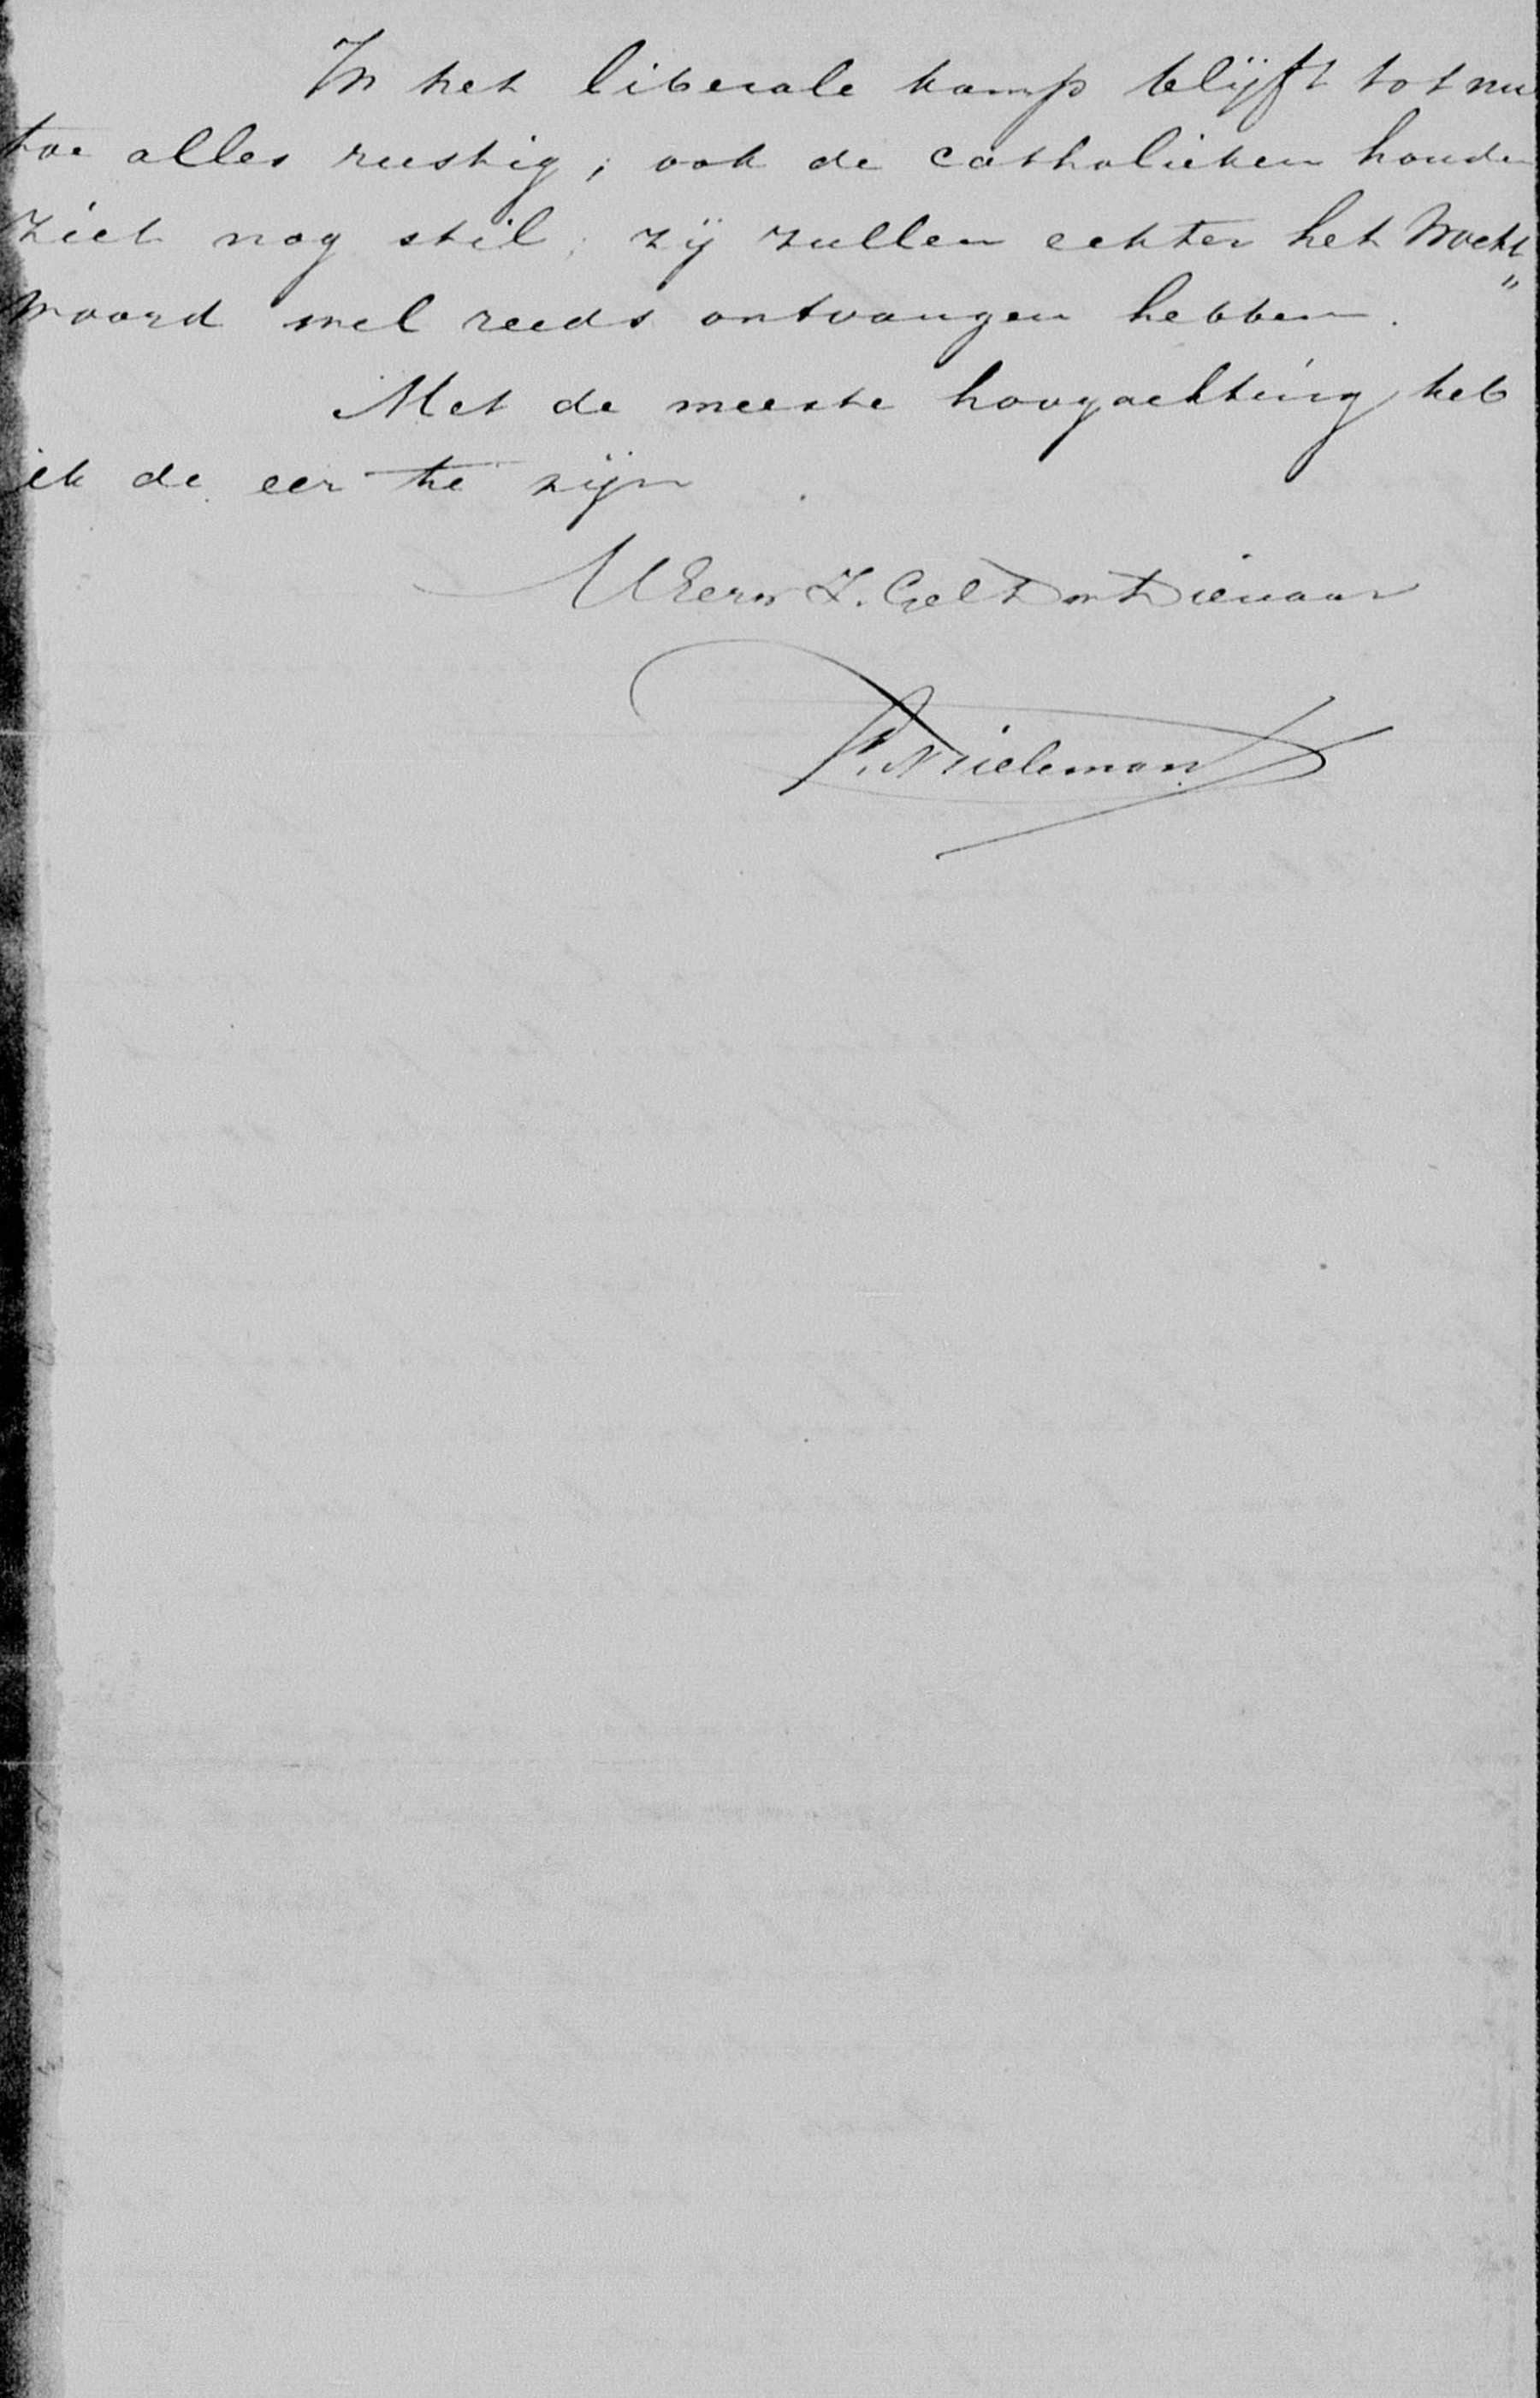 In het liberale kamp blijft tot nu
toe alles rustig; ook de catholieken houden
zich nog stil; zij zullen echter het Wacht„
woord wel reeds ontvangen hebben.
Met de meeste hoogachting heb
ik de eer te zijn
UEerw Z. Gel D en Dienaar